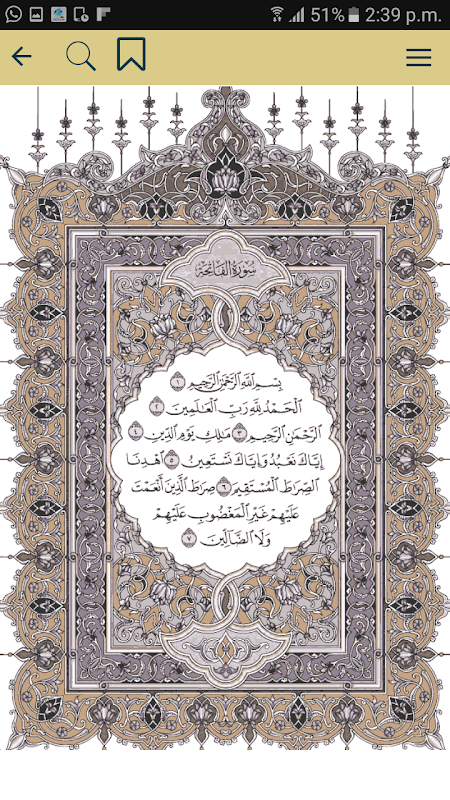 51% 2:39 p.m.
سُورَةُ الفَاتِحَةِ
بِسْمِ ٱللَّهِ ٱلرَّحْمَٰنِ ٱلرَّحِيمِ ١
ٱلْحَمْدُ لِلَّهِ رَبِّ ٱلْعَٰلَمِينَ ٢
ٱلرَّحْمَٰنِ ٱلرَّحِيمِ ٣ مَٰلِكِ يَوْمِ ٱلدِّينِ ٤
إِيَّاكَ نَعْبُدُ وَإِيَّاكَ نَسْتَعِينُ ٥ ٱهْدِنَا
ٱلصِّرَٰطَ ٱلْمُسْتَقِيمَ ٦ صِرَٰطَ ٱلَّذِينَ أَنْعَمْتَ
عَلَيْهِمْ غَيْرِ ٱلْمَغْضُوبِ عَلَيْهِمْ
وَلَا ٱلضَّآلِّينَ ٧